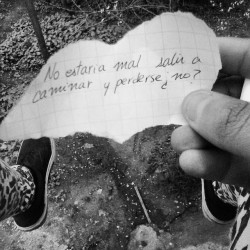 No estaria mal salir a
caminar y perderse ¿no?